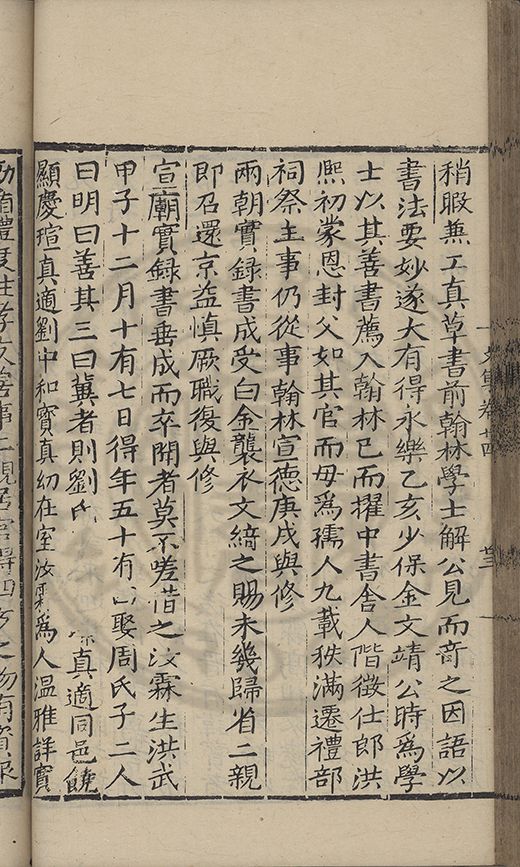 稍暇兼工真草書前翰林學士解公見而竒之因語以
書法要妙遂大有得永樂乙亥少保金文靖公時爲學
士以其善書薦入翰林已而擢中書舍人階徵仕郎洪
熈初蒙恩封父如其官而母爲孺人九載秩滿遷禮部
祠祭主事仍從事翰林宣德庚戌與修
兩朝實録書成受白金襲衣文綺之賜未幾歸省二親
即召還京益慎厥職復與修
宣廟實録書垂成而卒聞者莫不嗟惜之汝霖生洪武
甲子十二月十有七日得年五十有 娶周氏子二人
曰明曰善其三曰冀者則劉氏 真適同邑饒
顯慶瑄真適劉中和寳真幼在室汝霖爲人温雅詳實